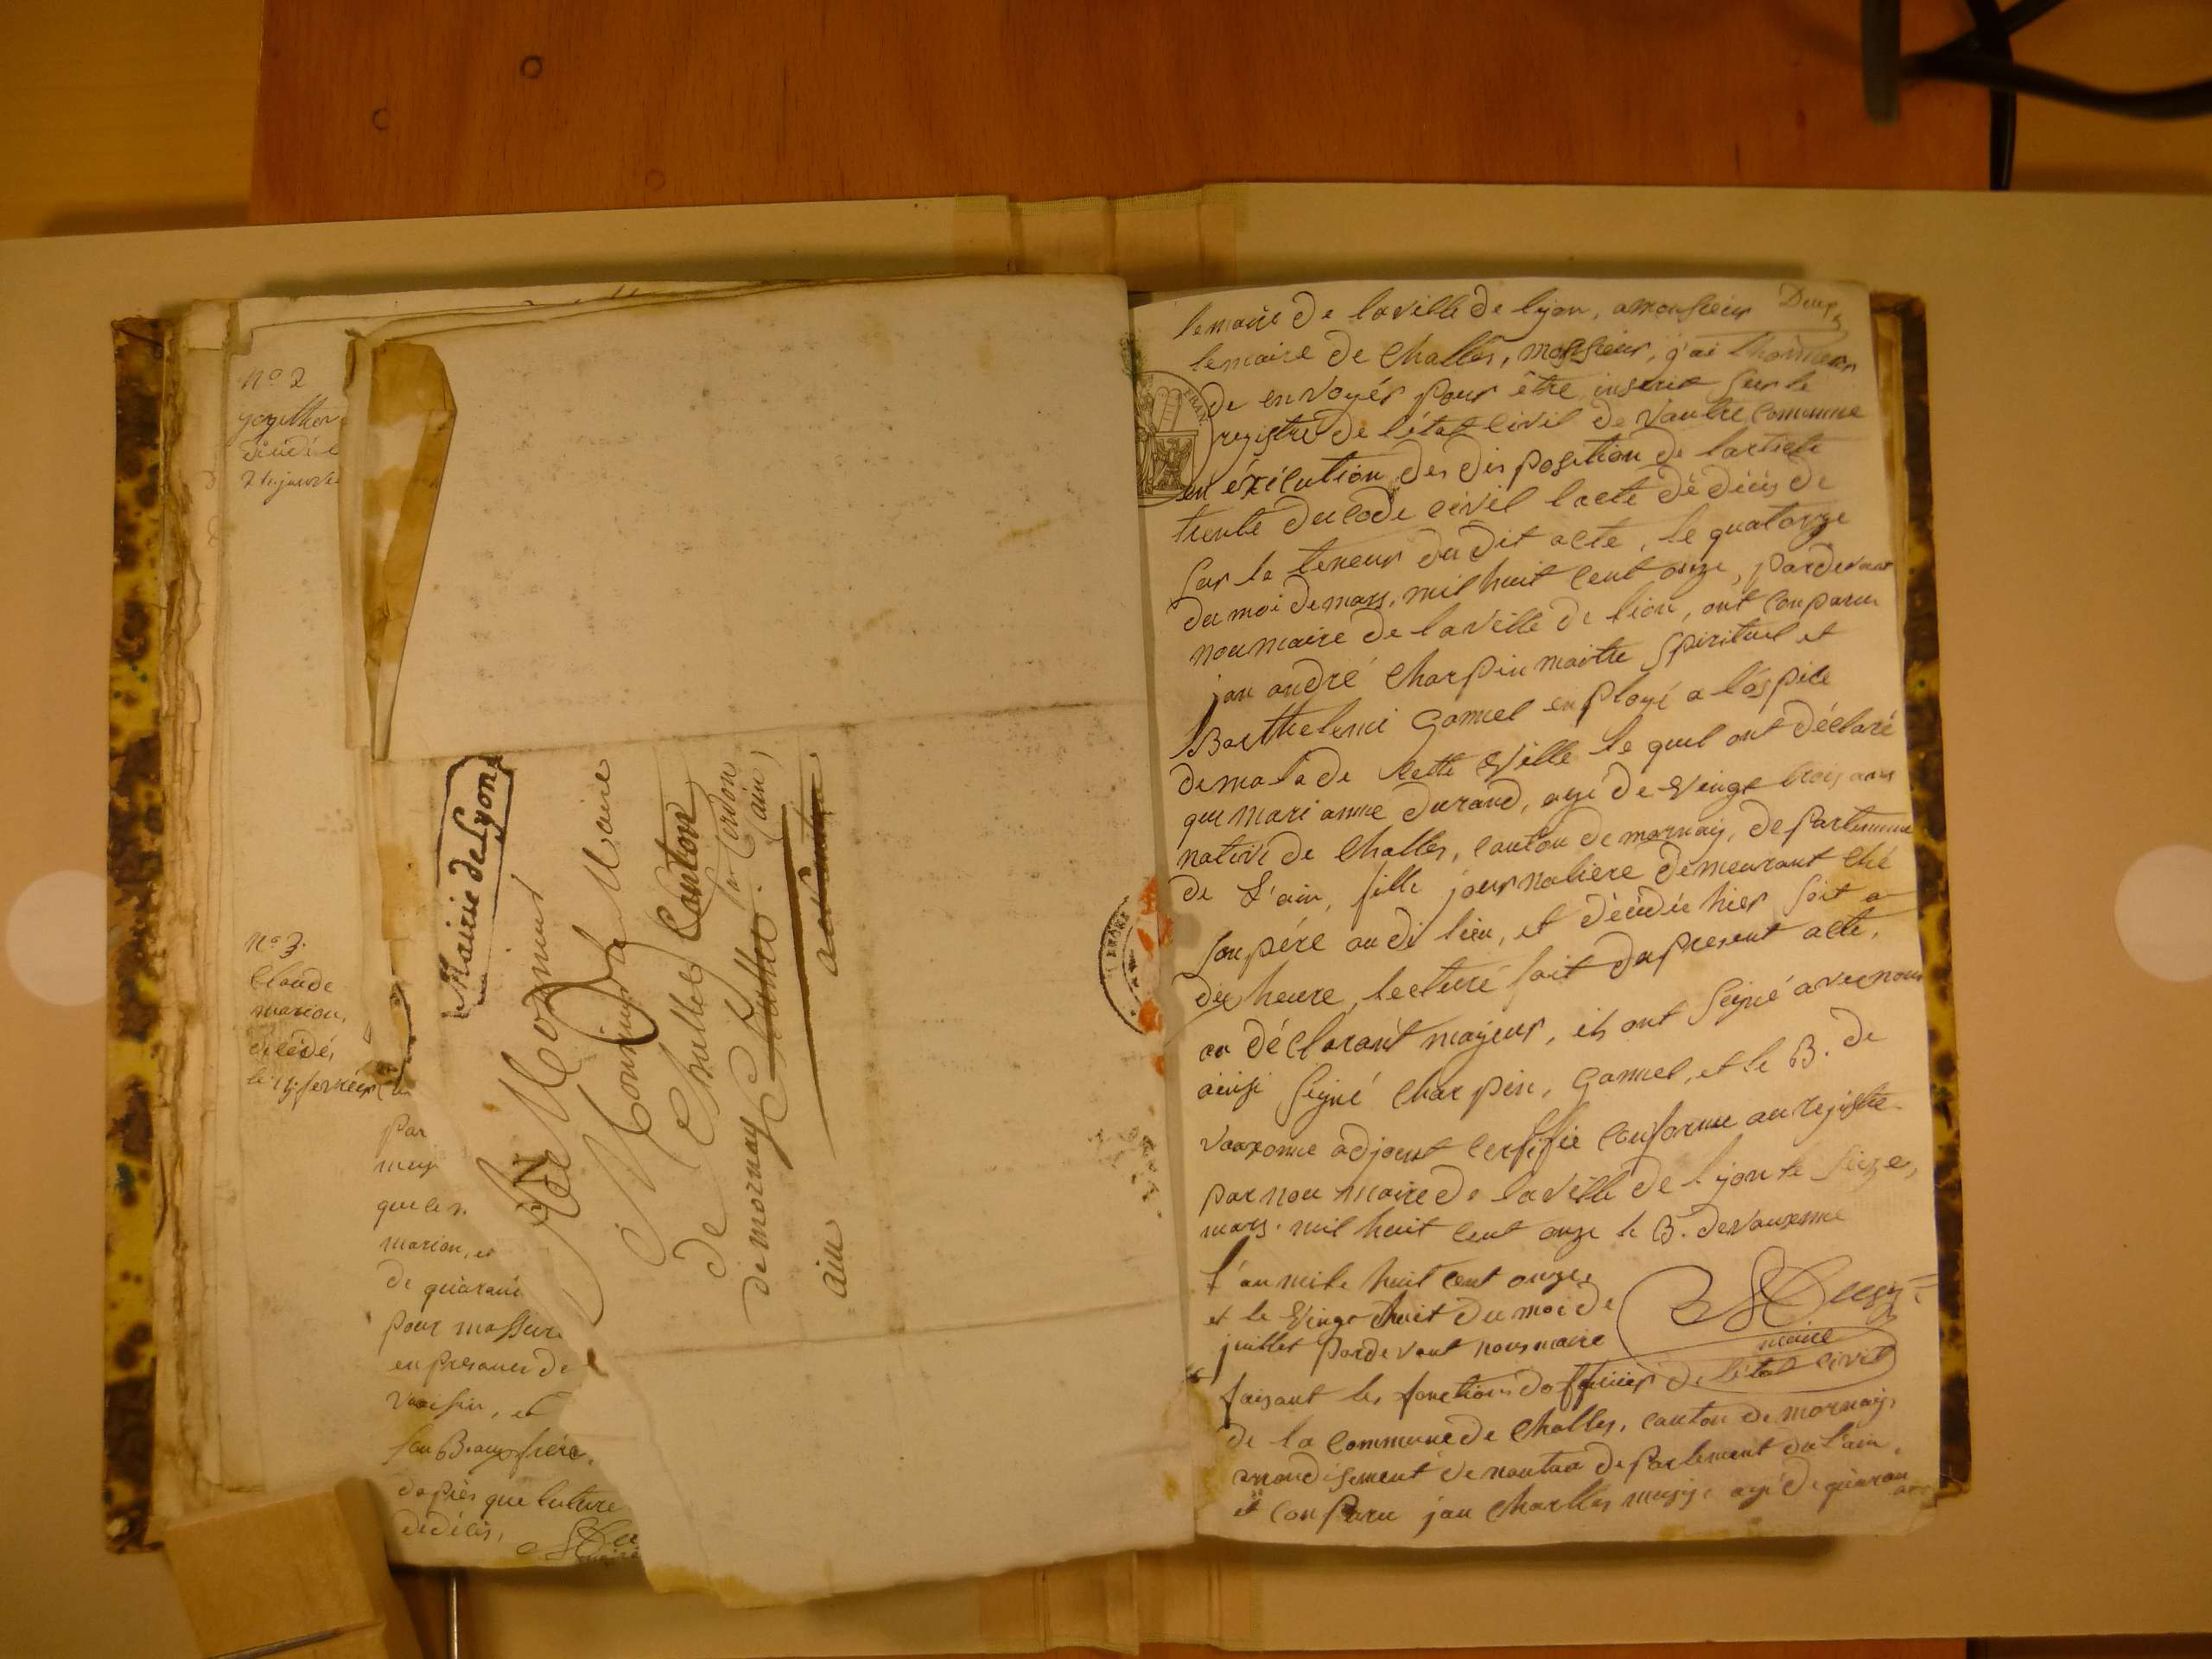 N° 2
décédé le
N° 3.
Claude
marion,
décédé,
le 14 fervier
par
que le s.
marion, et
de quarant
pour massur
en presance de
voaisin, et
son Beauxfrére,
dapiés que luture
dedécés,
Mairie de Lyon
A Monsieur
Monsieur le Maire
de Challes Canton
de mornay par Cerdon
(ain)
ain
Deux
le maire de la ville de lyon, a monsieur
le maire de Challes, monsieur, j'ai l'honneur
de envoyér pour être inscrit sur le
FRAN.
registre de l'état civil de vautre commune
en éxécution des disposition de larticle
trente du code civil lacte dé décés de
sur la teneur du dit acte, le quatorze
du moi de mars, mil huit cent onze, pardevant
nou maire de la ville de lion, ont conparu
jan andré Charpin maitre spirituel et
Barthelemi gamuel enployé a l'óspice
de malade cette ville le quel ont déclaré
que marianne durand, agé de vingt trois ans
native de Challes, canton de mornay, departement
de L'ain, fille journaliere demeurant ché
son pére au di lieu, et décédée hier soit a
dix heure, lecture fait du present acte,
au déclarant majeur, ils ont signé avec nous
ainsi signé Charpin, gamuel, et le B. de
vauxonne adjoint certifié conforme au registre
par nou maire de la ville de lyon le seize,
mars. mil huit cent onze le B. de vauxonne
L'an mile huit cent onze,
et le vingt huit du moi de
juillet pardevant nous maire
maire
faisant les fonctions doffficier de l'état civil
de la commune de Challes, canton de mornay,
arrondisement de nantua departement de l'ain,
et conparu jan Charlles